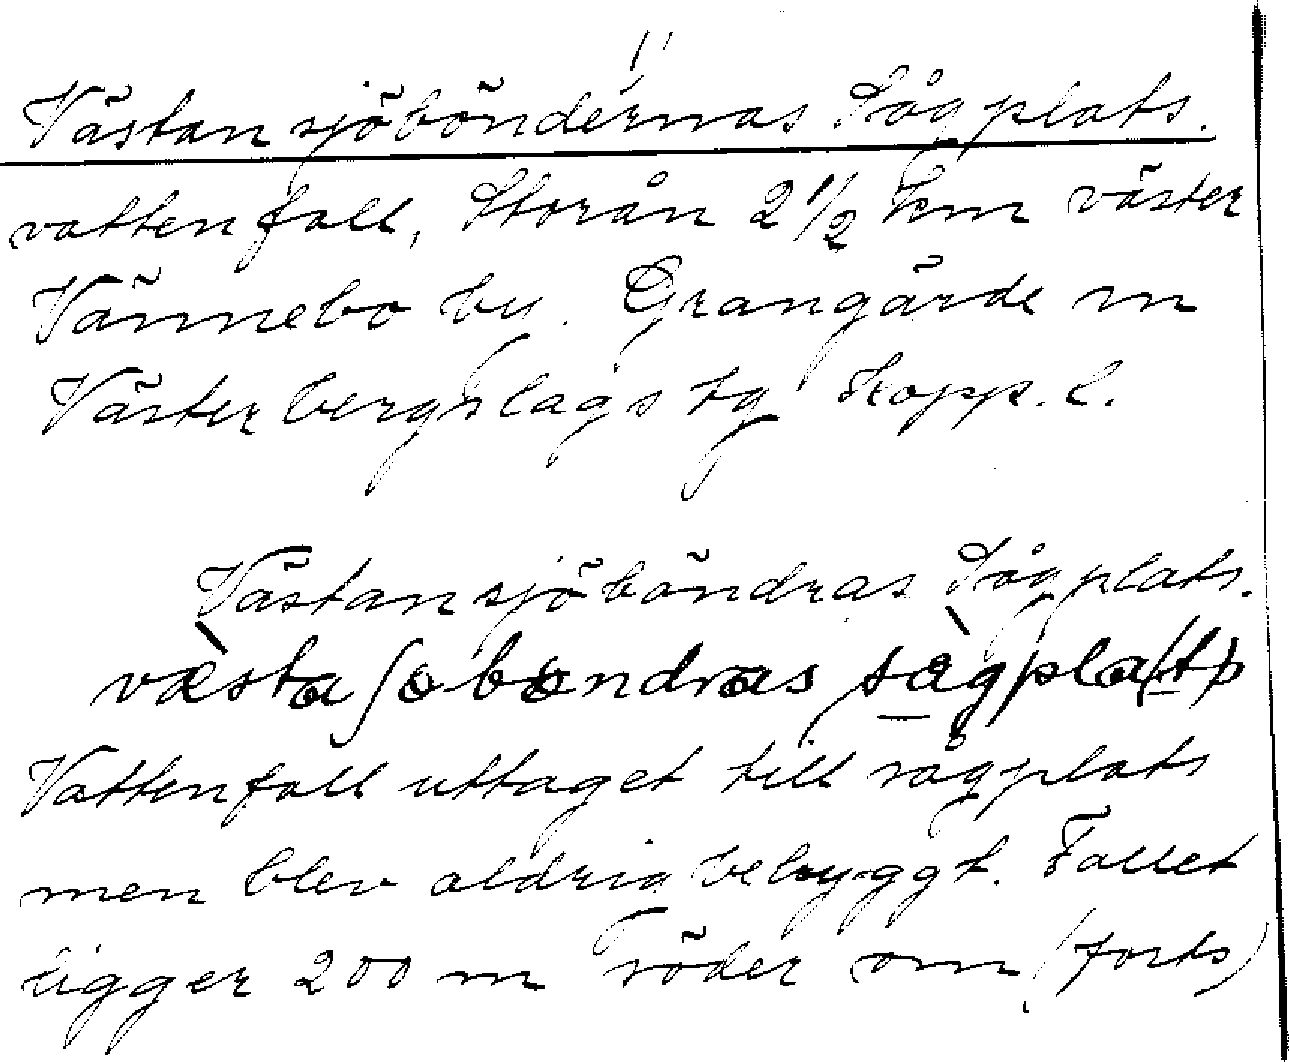 Västansjöböndernas Sågplats.
vattenfall, Storån 2 1/2 km väster
Vännebo by. Grangärde sn
Västerbergslags tg Kopp. l.
Västansjöböndras Sågplats.
vὲsta ʃøbøndras sàgpla(t)s
Vattenfall uttaget till sågplats
men blev aldrig bebyggt. Fallet
ligger 200 m söder om (forts)